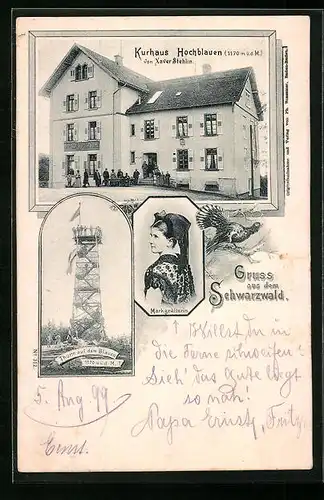 Kurhaus Hochblauen (1170 m ü.d.M.)
von Xaver Stehlin.
Markgräflerin
Gruss
aus dem
Schwarzwald.
Thurm auf dem Blauen
1170 m ü.d.M.
Willst du in
die Ferne schweifen?
Sieh' das Gute liegt
so nah!
5. Aug 99
Papa Ernst, Fritz,
Ernst.